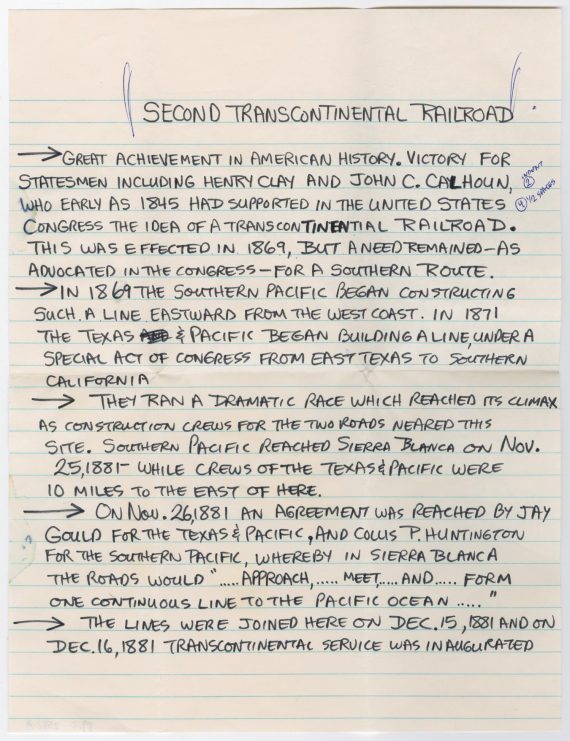 SECOND TRANSCONTINENTAL RAILROAD
→ GREAT ACHIEVEMENT IN AMERICAN HISTORY. VICTORY FOR
STATESMEN INCLUDING HENRY CLAY AND JOHN C. CALHOUN,
WHO EARLY AS 1845 HAD SUPPORTED IN THE UNITED STATES
CONGRESS THE IDEA OF A TRANSCONTINENTAL RAILROAD.
THIS WAS EFFECTED IN 1869, BUT A NEED REMAINED—AS
ADVOCATED IN THE CONGRESS—FOR A SOUTHERN ROUTE.
→ IN 1869 THE SOUTHERN PACIFIC BEGAN CONSTRUCTING
SUCH A LINE EASTWARD FROM THE WEST COAST. IN 1871
THE TEXAS & PACIFIC BEGAN BUILDING A LINE, UNDER A
SPECIAL ACT OF CONGRESS FROM EAST TEXAS TO SOUTHERN
CALIFORNIA
→ THEY RAN A DRAMATIC RACE WHICH REACHED ITS CLIMAX
AS CONSTRUCTION CREWS FOR THE TWO ROADS NEARED THIS
SITE. SOUTHERN PACIFIC REACHED SIERRA BLANCA ON NOV.
25, 1881— WHILE CREWS OF THE TEXAS & PACIFIC WERE
10 MILES TO THE EAST OF HERE.
→ ON NOV. 26, 1881 AN AGREEMENT WAS REACHED BY JAY
GOULD FOR THE TEXAS & PACIFIC, AND COLLIS P. HUNTINGTON
FOR THE SOUTHERN PACIFIC, WHEREBY IN SIERRA BLANCA
THE ROADS WOULD "..... APPROACH, ..... MEET, .... AND ..... FORM
ONE CONTINUOUS LINE TO THE PACIFIC OCEAN ....."
→ THE LINES WERE JOINED HERE ON DEC. 15, 1881 AND ON
DEC. 16, 1881 TRANSCONTINENTAL SERVICE WAS INAUGURATED
INDENT
2
4 1/2 SPACES